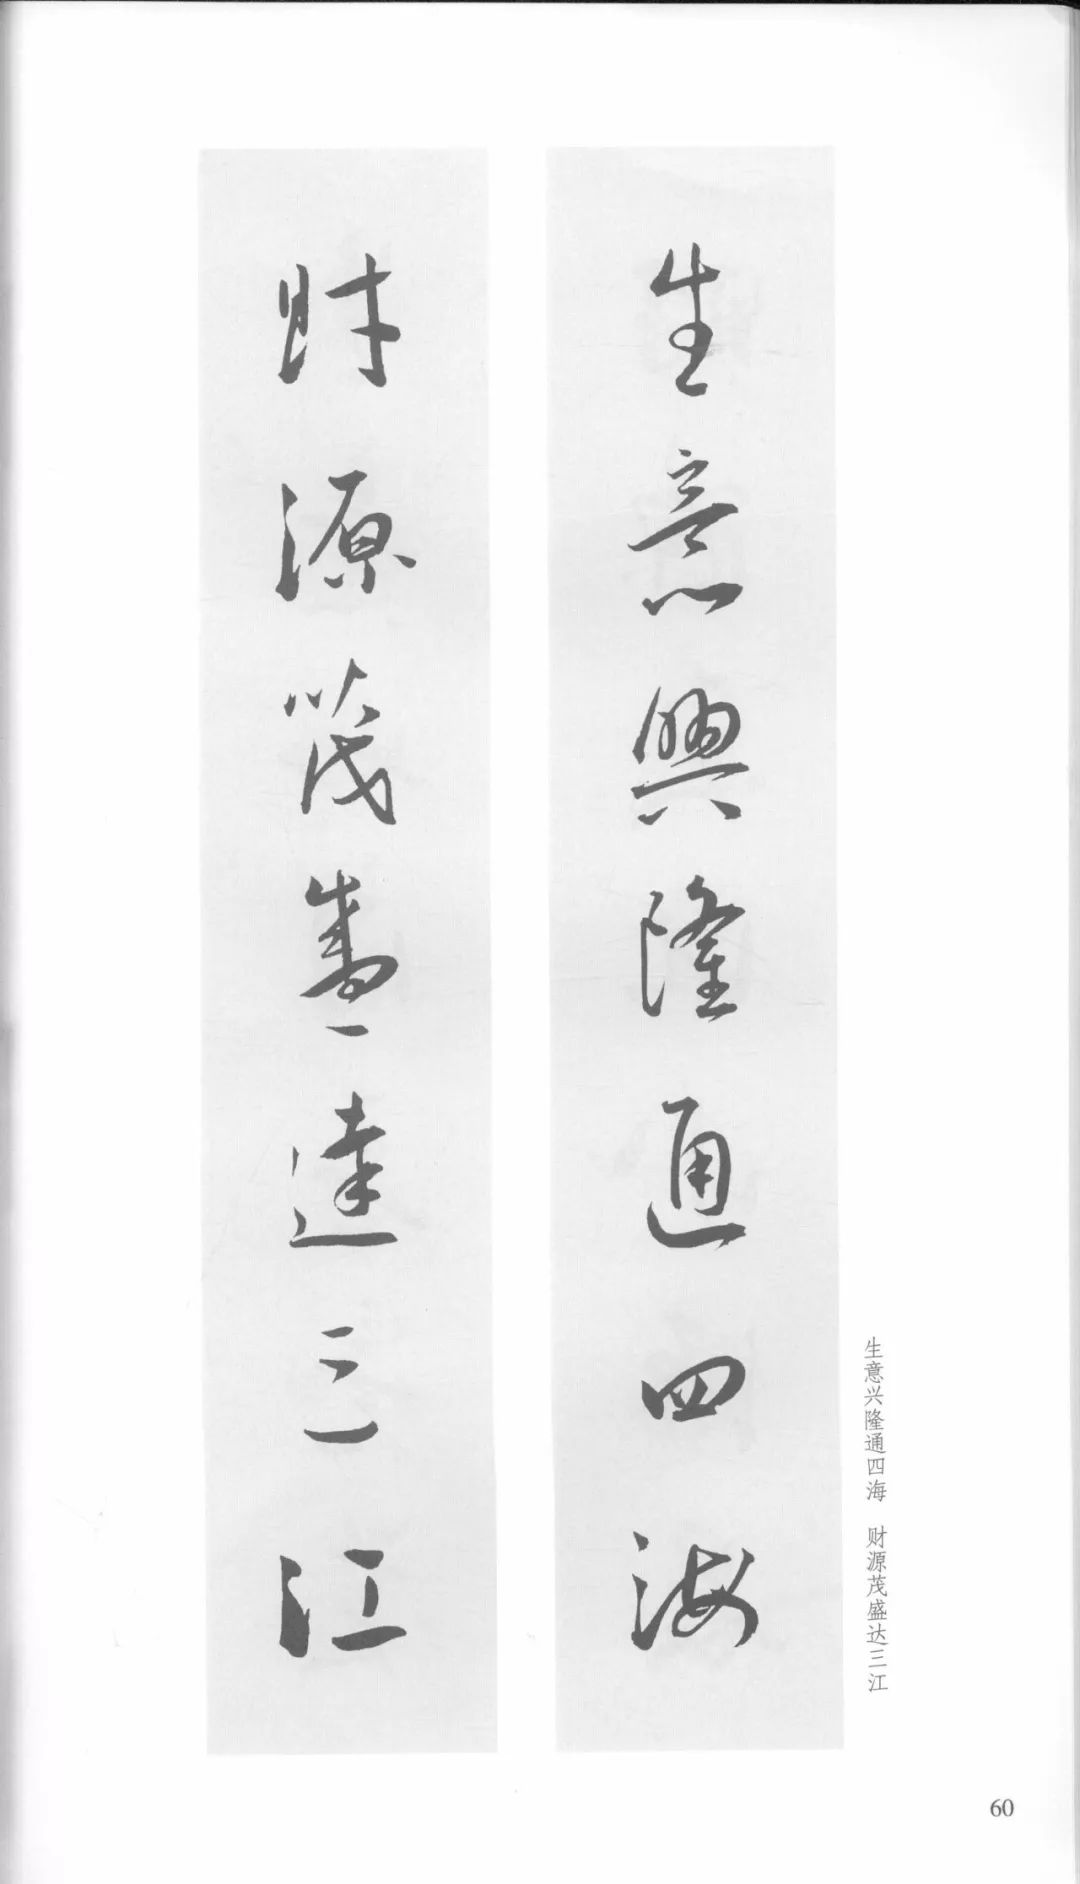 生意興隆通四海
財源茂盛達三江
生意兴隆通四海 财源茂盛达三江
60